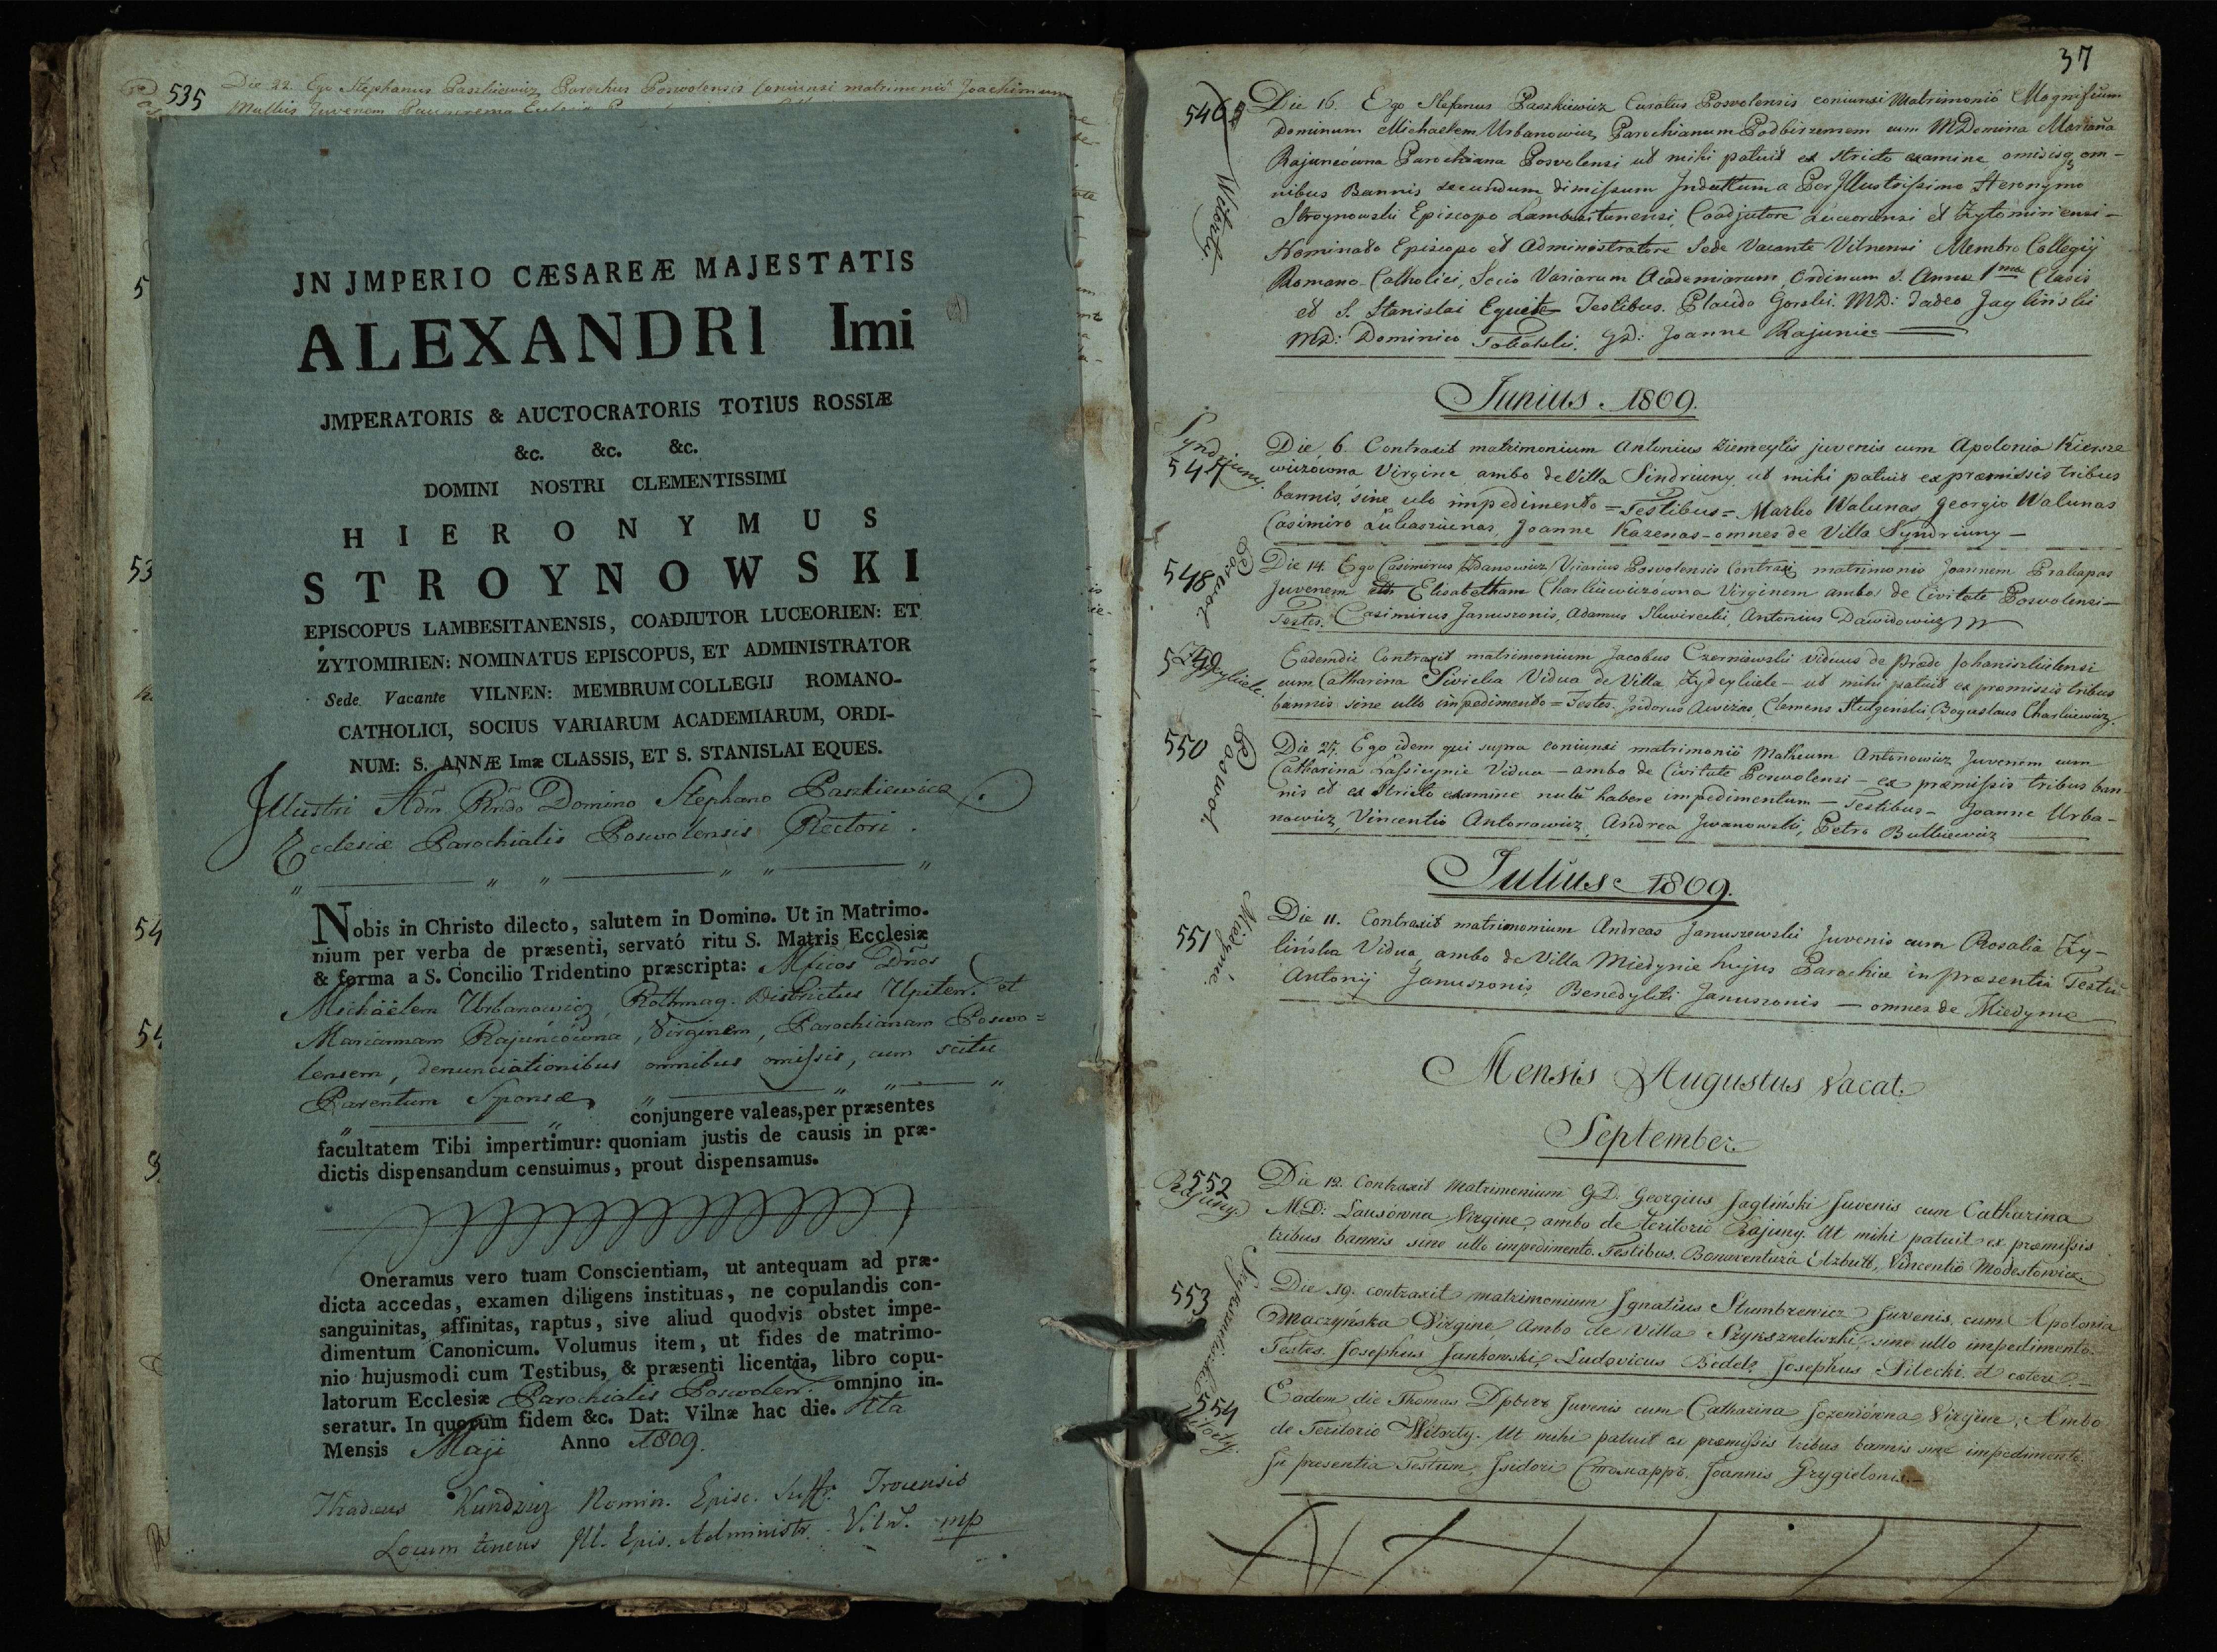 535
Die 22. Ego Stephanus Paszkiewicz Parochus Poswolensis coniunxi matrimonio Joachimum
JN JMPERIO CÆSAREÆ MAJESTATIS
ALEXANDRI Imi
JMPERATORIS & AUCTOCRATORIS TOTIUS ROSSIÆ
&c. &c. &c.
DOMINI NOSTRI CLEMENTISSIMI
HIERONYMUS
STROYNOWSKI
EPISCOPUS LAMBESITANENSIS, COADJUTOR LUCEORIEN: ET
ZYTOMIRIEN: NOMINATUS EPISCOPUS, ET ADMINISTRATOR
Sede Vacante VILNEN: MEMBRUM COLLEGIJ ROMANO-
CATHOLICI, SOCIUS VARIARUM ACADEMIARUM, ORDI-
NUM: S. ANNÆ Imæ CLASSIS, ET S. STANISLAI EQUES.
Illustri Adm Rndo Domino Stephano Paszkiewicz
Ecclesiæ Parochialis Poswolensis Rectori.
Nobis in Christo dilecto, salutem in Domino. Ut in Matrimo-
nium per verba de præsenti, servató ritu S. Matris Ecclesiæ
& forma a S. Concilio Tridentino præscripta: Mficos Dños
Michäelem Urbanowicz, Rothmag. Districtus Upiten. et
Mariannam Rajuncówna, Virginem, Parochianam Poswo=
lensem, denunciationibus omnibus omissis, cum scitu
Parentum Sponsæ, conjungere valeas, per præsentes
facultatem Tibi impertimur: quoniam justis de causis in præ-
dictis dispensandum censuimus, prout dispensamus.
Oneramus vero tuam Conscientiam, ut antequam ad præ-
dicta accedas, examen diligens instituas, ne copulandis con-
sanguinitas, affinitas, raptus, sive aliud quodvis obstet impe-
dimentum Canonicum. Volumus item, ut fides de matrimo-
nio hujusmodi cum Testibus, & præsenti licentia, libro copu-
latorum Ecclesiæ Parochialis Poswolen. omnino in-
seratur. In quorum fidem &c. Dat: Vilnæ hac die.
Mensis Maji Anno 1809.
Thadeus Kundzicz Nomin. Episc. Suffr. Trocensis
Locum tenens Ill. Epis. Administr. Viln. mp
37
546 Witorty
Die 16. Ego Stefanus Paszkiewicz Curatus Posvolensis coniunxi Matrimonio Magnificum
Dominum Michaelem Urbanowicz Parochianum Podbirzensem cum MDomina Marianna
Rajuncówna Parochiana Posvolensi ut mihi patuit ex stricto examine omisisq om-
nibus Bannis secundum dimissum Indultum a Per Illustrissimo Hieronymo
Stroynowski Episcopo Lambesitanensi, Coadjutore Luceoriensi et Zytomiriensi-
Nominato Episcopo et Administratore Sede Vacante Vilnensi Membro Collegij
Romano-Catholici, Socio Variarum Academiarum, Ordinum S. Annæ 1mæ Clasis
et S. Stanislai Equite Testibus. Claudo Gorski. MD: Tadeo Jaglinski
MD: Dominico GD: Joanne Rajuniec
Junius 1809.
Syndriuny. 547
Die 6. Contraxit matrimonium Antonius Ziemeylis juvenis cum Apolonia Kiersze
wiczówna Virgine ambo de Villa Sindriuny, ut mihi patuit ex præmissis tribus
bannis, sine ulo impedimento = Testibus = Marko Walunas, Georgio Walunas
Casimiro Joanne Kazenas - omnes de Villa Syndriuny -
548 Poswol
Die 14. Ego Casimirus Zdanowicz Vicarius Posvolensis Contraxi matrimonio Joannem Prakapas
Juvenem Elisabetham Charkiewiczówna Virginem ambos de Civitate Posvolensi-
Testes. Casimirus Januszonis, Adamus Antonius Dawidowicz
549
Eademdie Contraxit matrimonium Jacobus Czerniawski viduus de Prædi Johaniszkielensi
cum Catharina Vidua de Villa - ut mihi patuit ex præmissis tribus
bannis sine ullo impedimento = Testes. Isidorus Clemens Boguslaus Charkiewicz.
550 Poswol
Die 25. Ego idem qui supra coniunxi matrimonio Matheum Antonowicz Juvenem cum
Catharina Vidua - ambo de Civitate Poswolensi - ex præmissis tribus ban-
nis et ex stricto examine nulũ habere impedimentum - Testibus - Joanne Urba-
nowicz, Vincentio Antonowicz, Andrea Iwanowski, Petro Butkiewicz
Julius 1809.
551 Miedynie.
Die 11. Contraxit matrimonium Andreas Januszewski Juvenis cum Rosalia Zy-
lińska Vidua, ambo de Villa Miedynie hujus Parochiæ in præsentia Testiũ
Antonij Januszonis, Benedykti Januszonis - omnes de Miedynie
Mensis Augustus Vacat.
September
552 Rajuny.
Die 12. Contraxit Matrimonium GD. Georgius Jagliński Juvenis cum Catharina
M.D: Lausówna Virgine, ambo de teritorio Rajuny. Ut mihi patuit ex præmissis
tribus bannis sine ullo impedimento. Testibus. Bonaventura Elzbutt, Vincentio Modestowicz.
553
Die 19. contraxit matrimonium Ignatius Stumbrewicz Juvenis, cum Apolonia
Virgine Ambo de Villa Szykszneliszki, sine ullo impedimento.
Testes. Josephus Jankowski, Ludovicus Bedelz, Josephus Pilecki. et cæteri.-
554 Witorty.
Eadem die Thomas Juvenis cum Catharina Virgine, Ambo
de Teritorio Witorty. Ut mihi patuit ex præmissis tribus bannis sine impedimento.
In præsentia Testium, Isidori Joannis Grygielonis.-